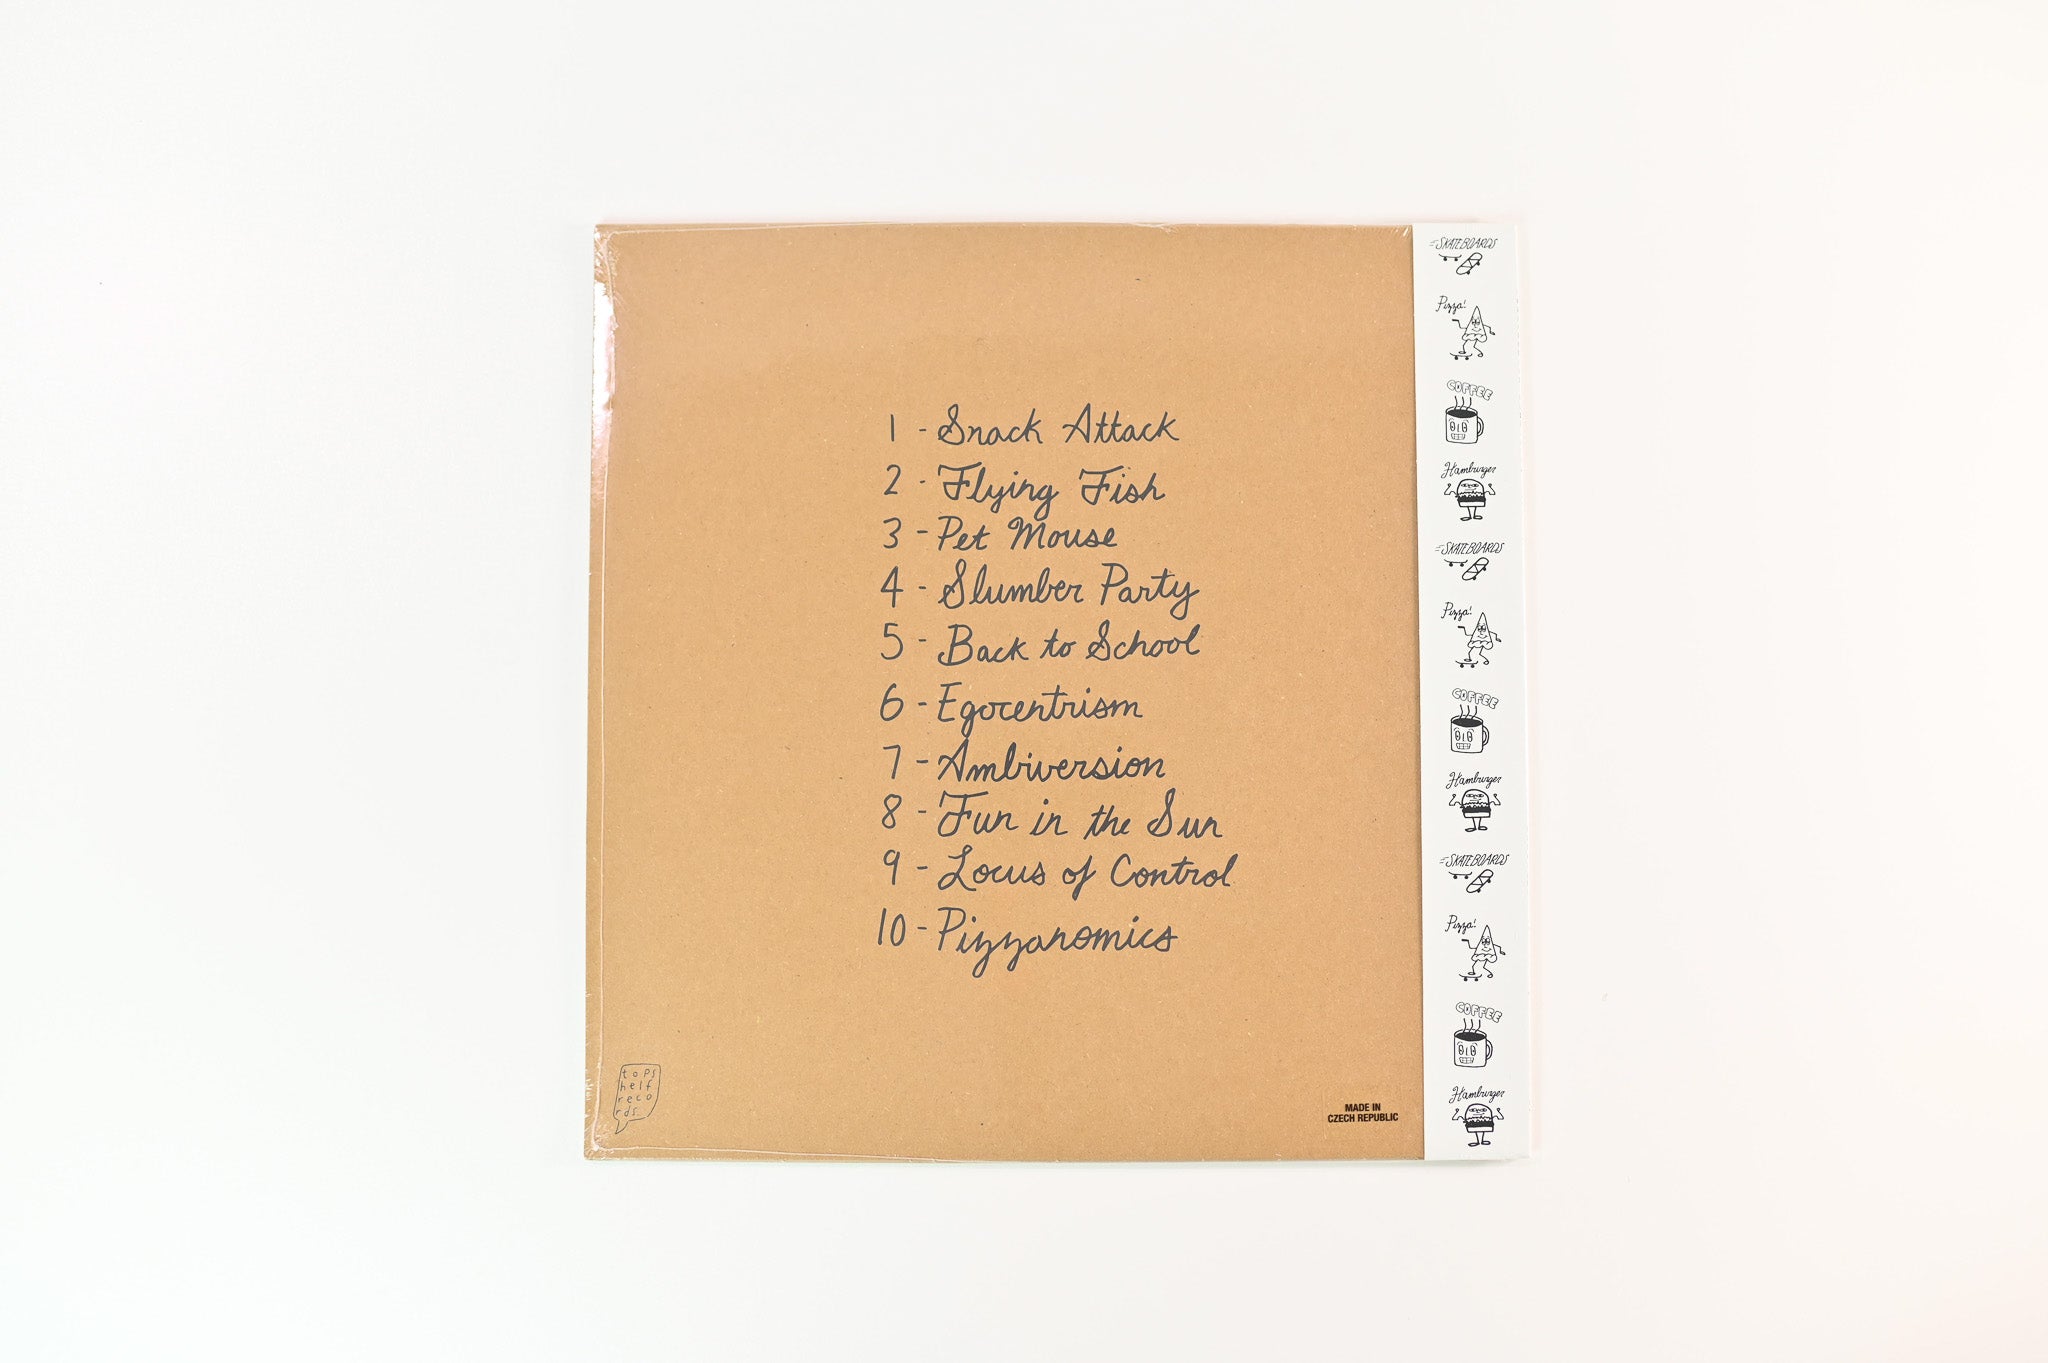 1 - Snack Attack
2 - Flying Fish
3 - Pet Mouse
4 - Slumber Party
5 - Back to School
6 - Egocentrism
7 - Ambiversion
8 - Fun in the Sun
9 - Locus of Control
10 - Pizzanomics
tops
helf
reco
rds
MADE IN
CZECH REPUBLIC
SKATEBOARDS
Pizza!
COFFEE
Hamburger
SKATEBOARDS
Pizza!
COFFEE
Hamburger
SKATEBOARDS
Pizza!
COFFEE
Hamburger